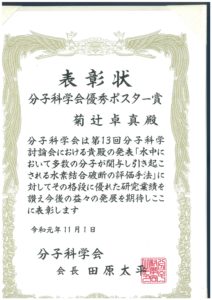 表彰状
分子科学会優秀ポスター賞
菊辻卓真殿
分子科学会は第13回分子科学
討論会における貴殿の発表「水中に
おいて多数の分子が関与し引き起こ
される水素結合破断の評価手法」に
対してその格段に優れた研究業績を
讃え今後の益々の発展を期待しここ
に表彰します
令和元年11月1日
分子科学会
会長 田原太平